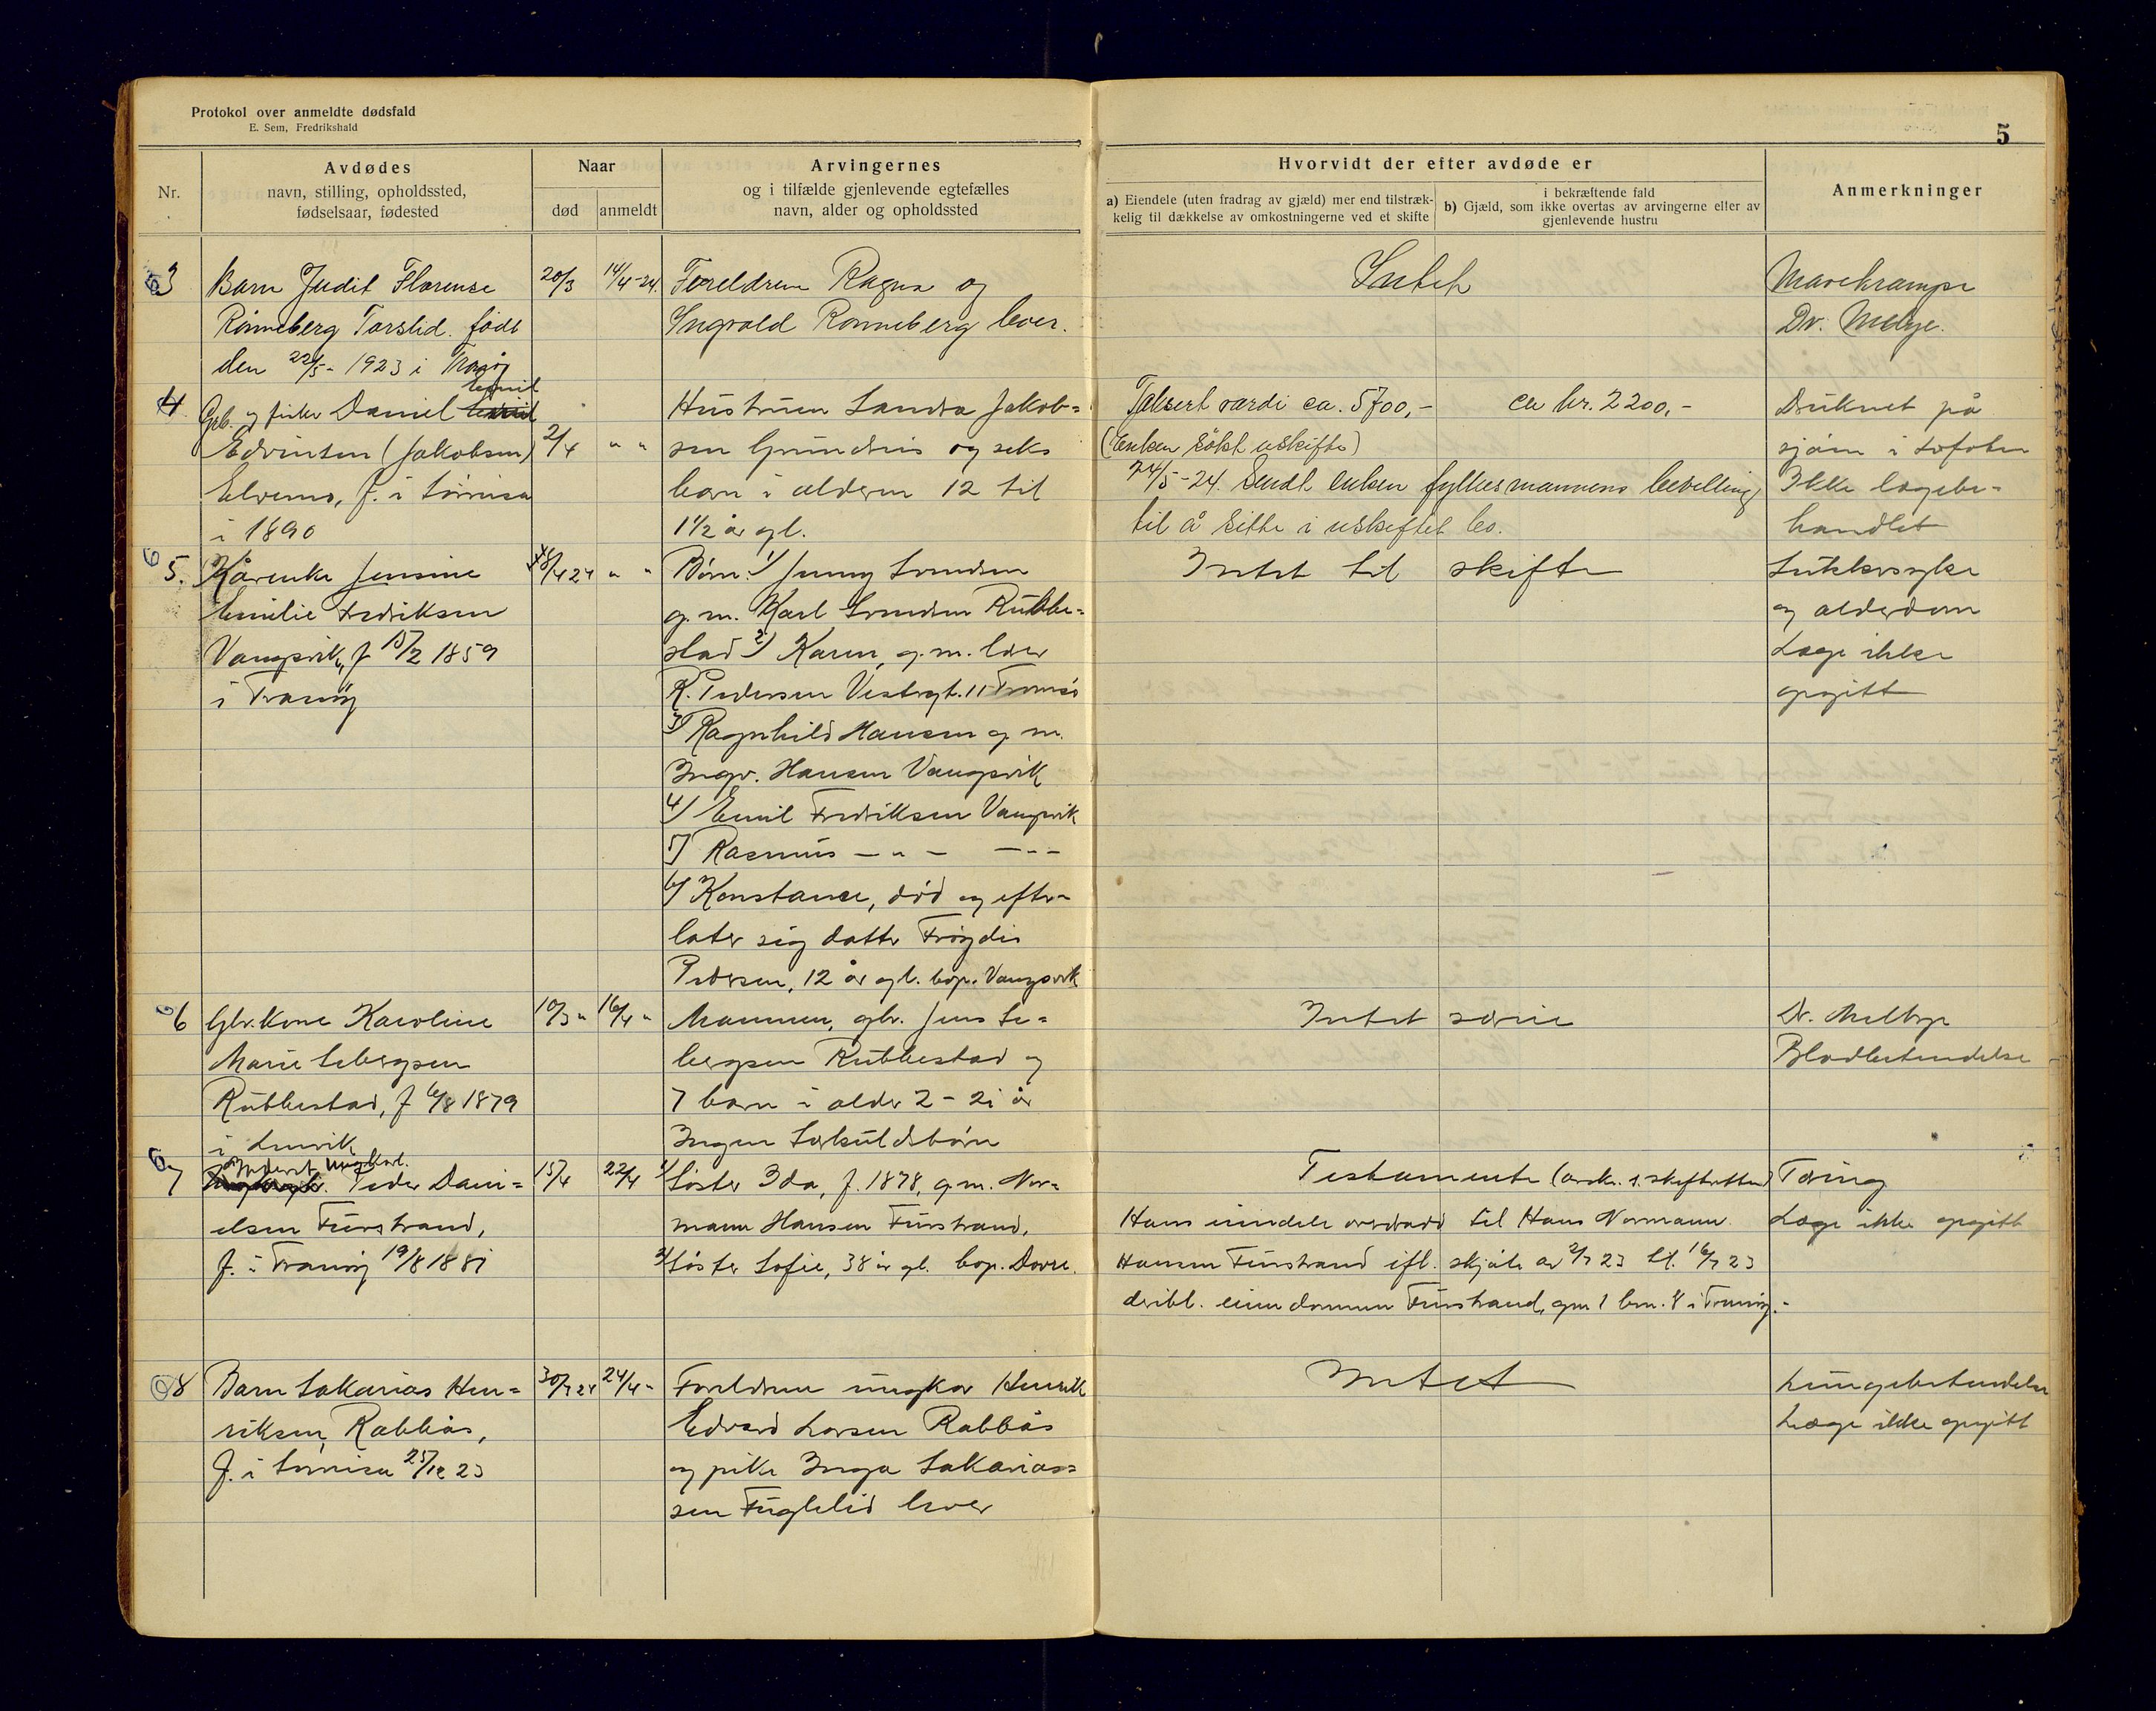 Protokol over anmeldte dødsfald
E. Sem, Fredrikshald
5
Nr.
Avdødes
navn, stilling, opholdssted,
fødselsaar, fødested
Naar
død
anmeldt
Arvingernes
og i tilfælde gjenlevende egtefælles
navn, alder og opholdssted
Hvorvidt der efter avdøde er
a) Eiendele (uten fradrag av gjæld) mer end tilstræk-
kelig til dækkelse av omkostningerne ved et skifte
i bekræftende fald
b) Gjæld, som ikke overtas av arvingerne eller av
gjenlevende hustru
Anmerkninger
3
Barn Judit Florense
Rönneberg Torslid. født
den 22/5 - 1923 i Tranøy
20/3
14/4-24.
Foreldrene Ragna og
Ingvald Rönneberg lever.
Intet
Mavekrampe
Dr. Melbye.
4
Gpb. og fisker Daniel
Edvinsen (Jakobsen)
Elvemo, f. i Sörreisa
i 1890
2/4
" "
Hustruen Sandra Jakob=
sen Grundnes og seks
barn i alderen 12 til
1 1/2 år gl.
Taksert værdi ca. 5700,-
ca kr. 2200,-
(Enken sökt uskifte)
24/5-24. Sendt enken fylkesmannens bevilling
til å sitte i uskiftet bo.
Druknet på
sjöen i Lofoten
Ikke lægebe-
handlet
5.
Kårenke Jensine
Emilie Fredriksen
Vangsvik, f 15/2 1859
i Tranöy
/4 24
" "
Börn: 1) Jenny Svendsen
g. m. Karl Svendsen Rubbe=
stad 2) Karen, g. m. Peder
K. Pedersen Vestregt. 11 Tromsö
3) Ragnhild Hansen g m.
Ingv. Hansen Vangsvik
4) Emil Fredriksen Vangsvik
5) Rasmus - " - - " -
6) Konstanse, död og efter-
later sig datter Fröydis
Pedersen, 12 år gl. bop. Vangsvik
Intet til skifte
Sukkersyke
og alderdom
Læge ikke
opgitt
6
Gbr.kone Karoline
Marie Sebergsen
Rubbestad, f 6/8 1879
i Lenvik
10/3 "
16/4 "
Mannen, gbr. Jens Se=
bergsen Rubbestad og
7 barn i alder 2 - 21 år
Ingen særkuldsbörn
Intet
Dr. Melbye
Blodbetendelse
7
ungkarl.
Peder Dani=
elsen Furstrand,
f. i Tranöy 19/8 1881
15/4
22/4
1) Söster Ida, f. 1878, g m. Nor=
mann Hansen Furstrand,
2) Söster Sofie, 38 år gl. bop. Dovre.
Testamente
Hans eiendele overdradd til Hans Normann
Hansen Furstrand ifl. skjöte av 2/7 23 tl. 16/7 23
deribl. eiendommen Furstrand, gnr 1 brn. 8 i Tranöy.-
Tæring
Læge ikke opgitt
8
Barn Sakarias Hen=
riksen Rabbås,
f. i Sörreisa 25/12 23
24/4 "
Foreldrene ungkar Henrik
Edvard Larsen Rabbås
og pike Inga Sakarias=
sen Fuglelid lever
Intet
Lungebetendelse
Læge ikke opgitt